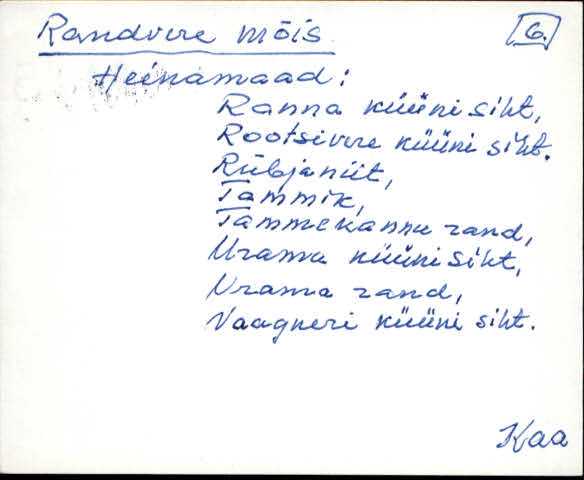 Randvere mõis. 6.
Heinamaad:
Ranna küüni siht,
Rootsivere küüni siht.
Rübjaniit,
Tammik,
Tammekannu rand,
Urama küüni siht,
Urama rand,
Vaagneri küüni siht.
Kaa